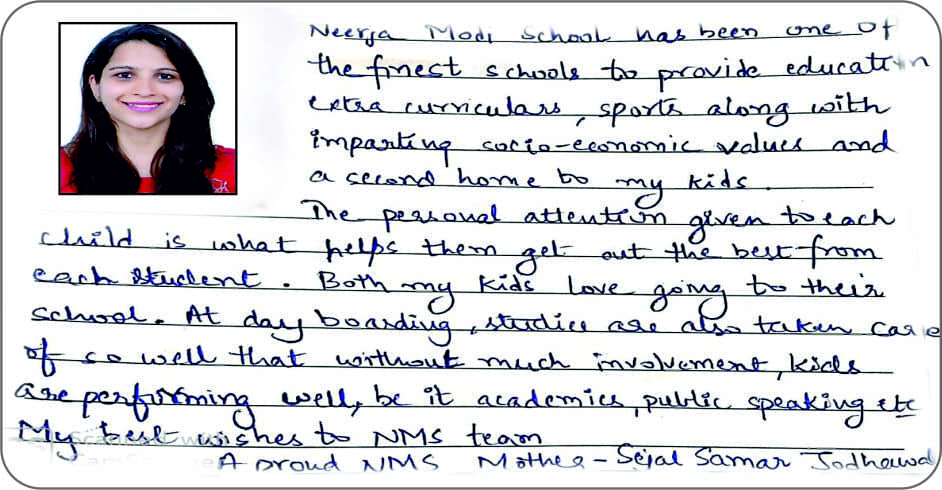 Neerja Modi School has been one of
the finest schools to provide education
extra curriculars, sports along with
imparting socio-economic values and
a second home to my kids.
The personal attention given to each
child is what helps them get out the best from
each student. Both my kids love going to their
school. At day boarding, studies are also taken care
of so well that without much involvement, kids
are performing well, be it academics, public speaking etc
My best wishes to NMS team
A proud NMS Mother - Sejal Samar